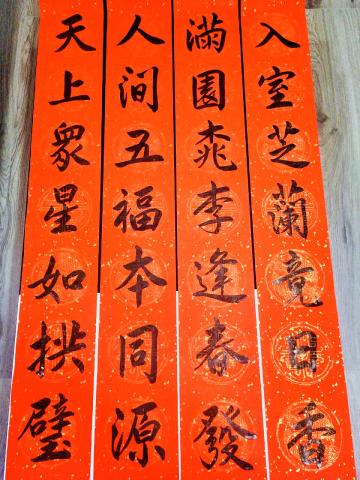 入室芝蘭竟日香
滿園桃李逢春發
人間五福本同源
天上眾星如拱璧